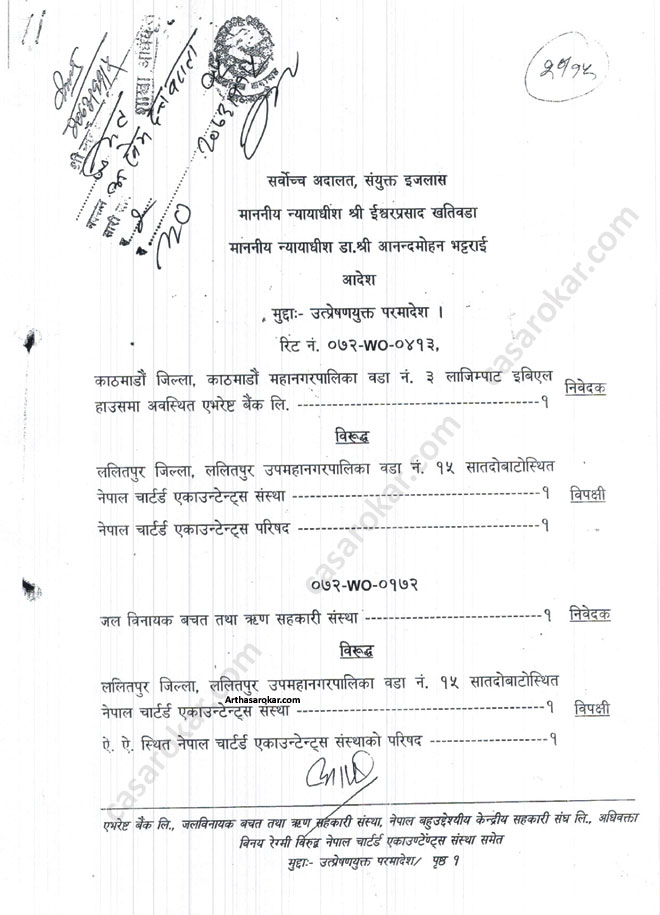 २१५
सर्वोच्च अदालत, संयुक्त इजलास
माननीय न्यायाधीश श्री ईश्वरप्रसाद खतिवडा
माननीय न्यायाधीश डा.श्री आनन्दमोहन भट्टराई
आदेश
मुद्दाः- उत्प्रेषणयुक्त परमादेश ।
रिट नं. ०७२-WO-०४१३,
काठमाडौं जिल्ला, काठमाडौं महानगरपालिका वडा नं. ३ लाजिम्पाट इबिएल
हाउसमा अवस्थित एभरेष्ट बैंक लि. ----------------------------------- १ निवेदक
विरूद्ध
ललितपुर जिल्ला, ललितपुर उपमहानगरपालिका वडा नं. १५ सातदोबाटोस्थित
नेपाल चार्टर्ड एकाउन्टेन्ट्स संस्था ----------------------------------- १ विपक्षी
नेपाल चार्टर्ड एकाउन्टेन्ट्स परिषद ----------------------------------- १
०७२-WO-०१७२
जल विनायक बचत तथा ऋण सहकारी संस्था ------------------------- १ निवेदक
विरूद्ध
ललितपुर जिल्ला, ललितपुर उपमहानगरपालिका वडा नं. १५ सातदोबाटोस्थित
Arthasarokar.com
नेपाल चार्टर्ड एकाउन्टेन्ट्स संस्था ----------------------------------- १ विपक्षी
ऐ. ऐ. स्थित नेपाल चार्टर्ड एकाउन्टेन्ट्स संस्थाको परिषद ----------------- १
एभरेष्ट बैंक लि., जलविनायक बचत तथा ऋण सहकारी संस्था, नेपाल बहुउद्देश्यीय केन्द्रीय सहकारी संघ लि., अधिवक्ता
विनय रेग्मी विरुद्ध नेपाल चार्टर्ड एकाउण्टेण्ट्स संस्था समेत
मुद्दाः- उत्प्रेषणयुक्त परमादेश/ पृष्ठ १
casarokar.com
casarokar.com
casarokar.com